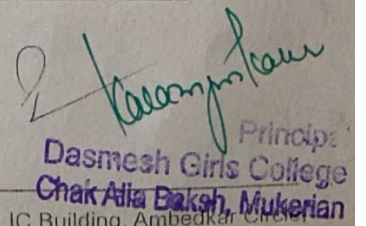 Principa
Dasmesh Girls College
Chak Alla Baksh, Mukerian
IC Building, Ambedkar Circle